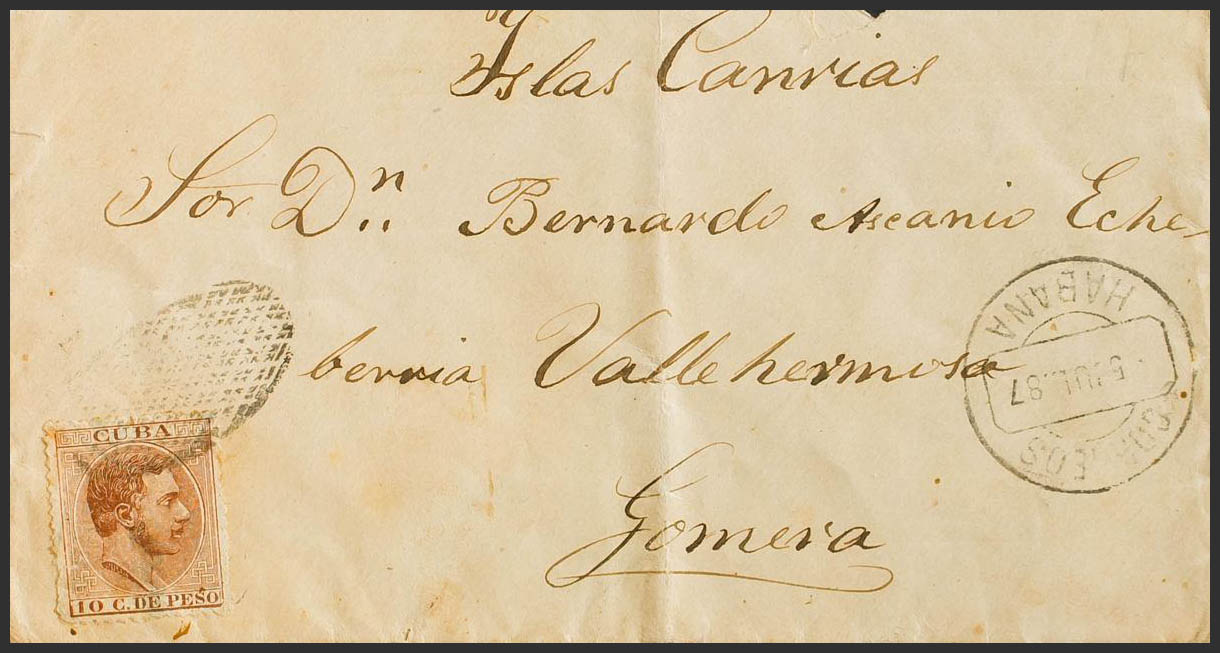 Islas Canrias
Sor Dn. Bernardo Ascanio Eche-
berria Vallehermosa
Gomera
HABANA
5 JUL. 87
CORREOS
CUBA
10 C. DE PESO